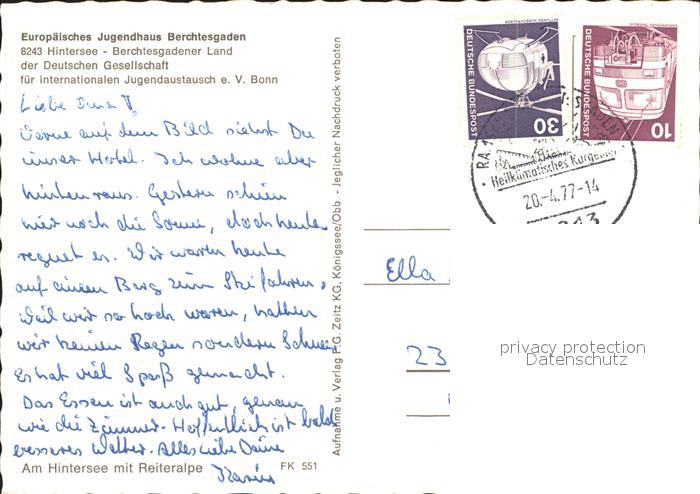 Europäisches Jugendhaus Berchtesgaden
8243 Hintersee - Berchtesgadener Land
der Deutschen Gesellschaft
für internationalen Jugendaustausch e. V. Bonn
Liebe Oma!
Vorne auf dem Bild siehst Du
unser Hotel. Ich wohne aber
hinten raus. Gestern schien
hier noch die Sonne, doch heute
regnet es. Wir waren heute
auf einem Berg zum Ski fahren.
Weil wir so hoch waren, hatten
wir keinen Regen sondern Schnee.
Es hat viel Spaß gemacht.
Das Essen ist auch gut, genau
wie die Zimmer. Hoffentlich ist bald
besseres Wetter. Alles Liebe Deine
Karin
Am Hintersee mit Reiteralpe FK 551
Aufnahme u. Verlag P.G. Zeitz KG, Königssee/Obb. - Jeglicher Nachdruck verboten
DEUTSCHE BUNDESPOST
30
DEUTSCHE BUNDESPOST
10
Heilklimatisches Kurgebiet
20.-4.77-14
Ella
23
privacy protection
Datenschutz